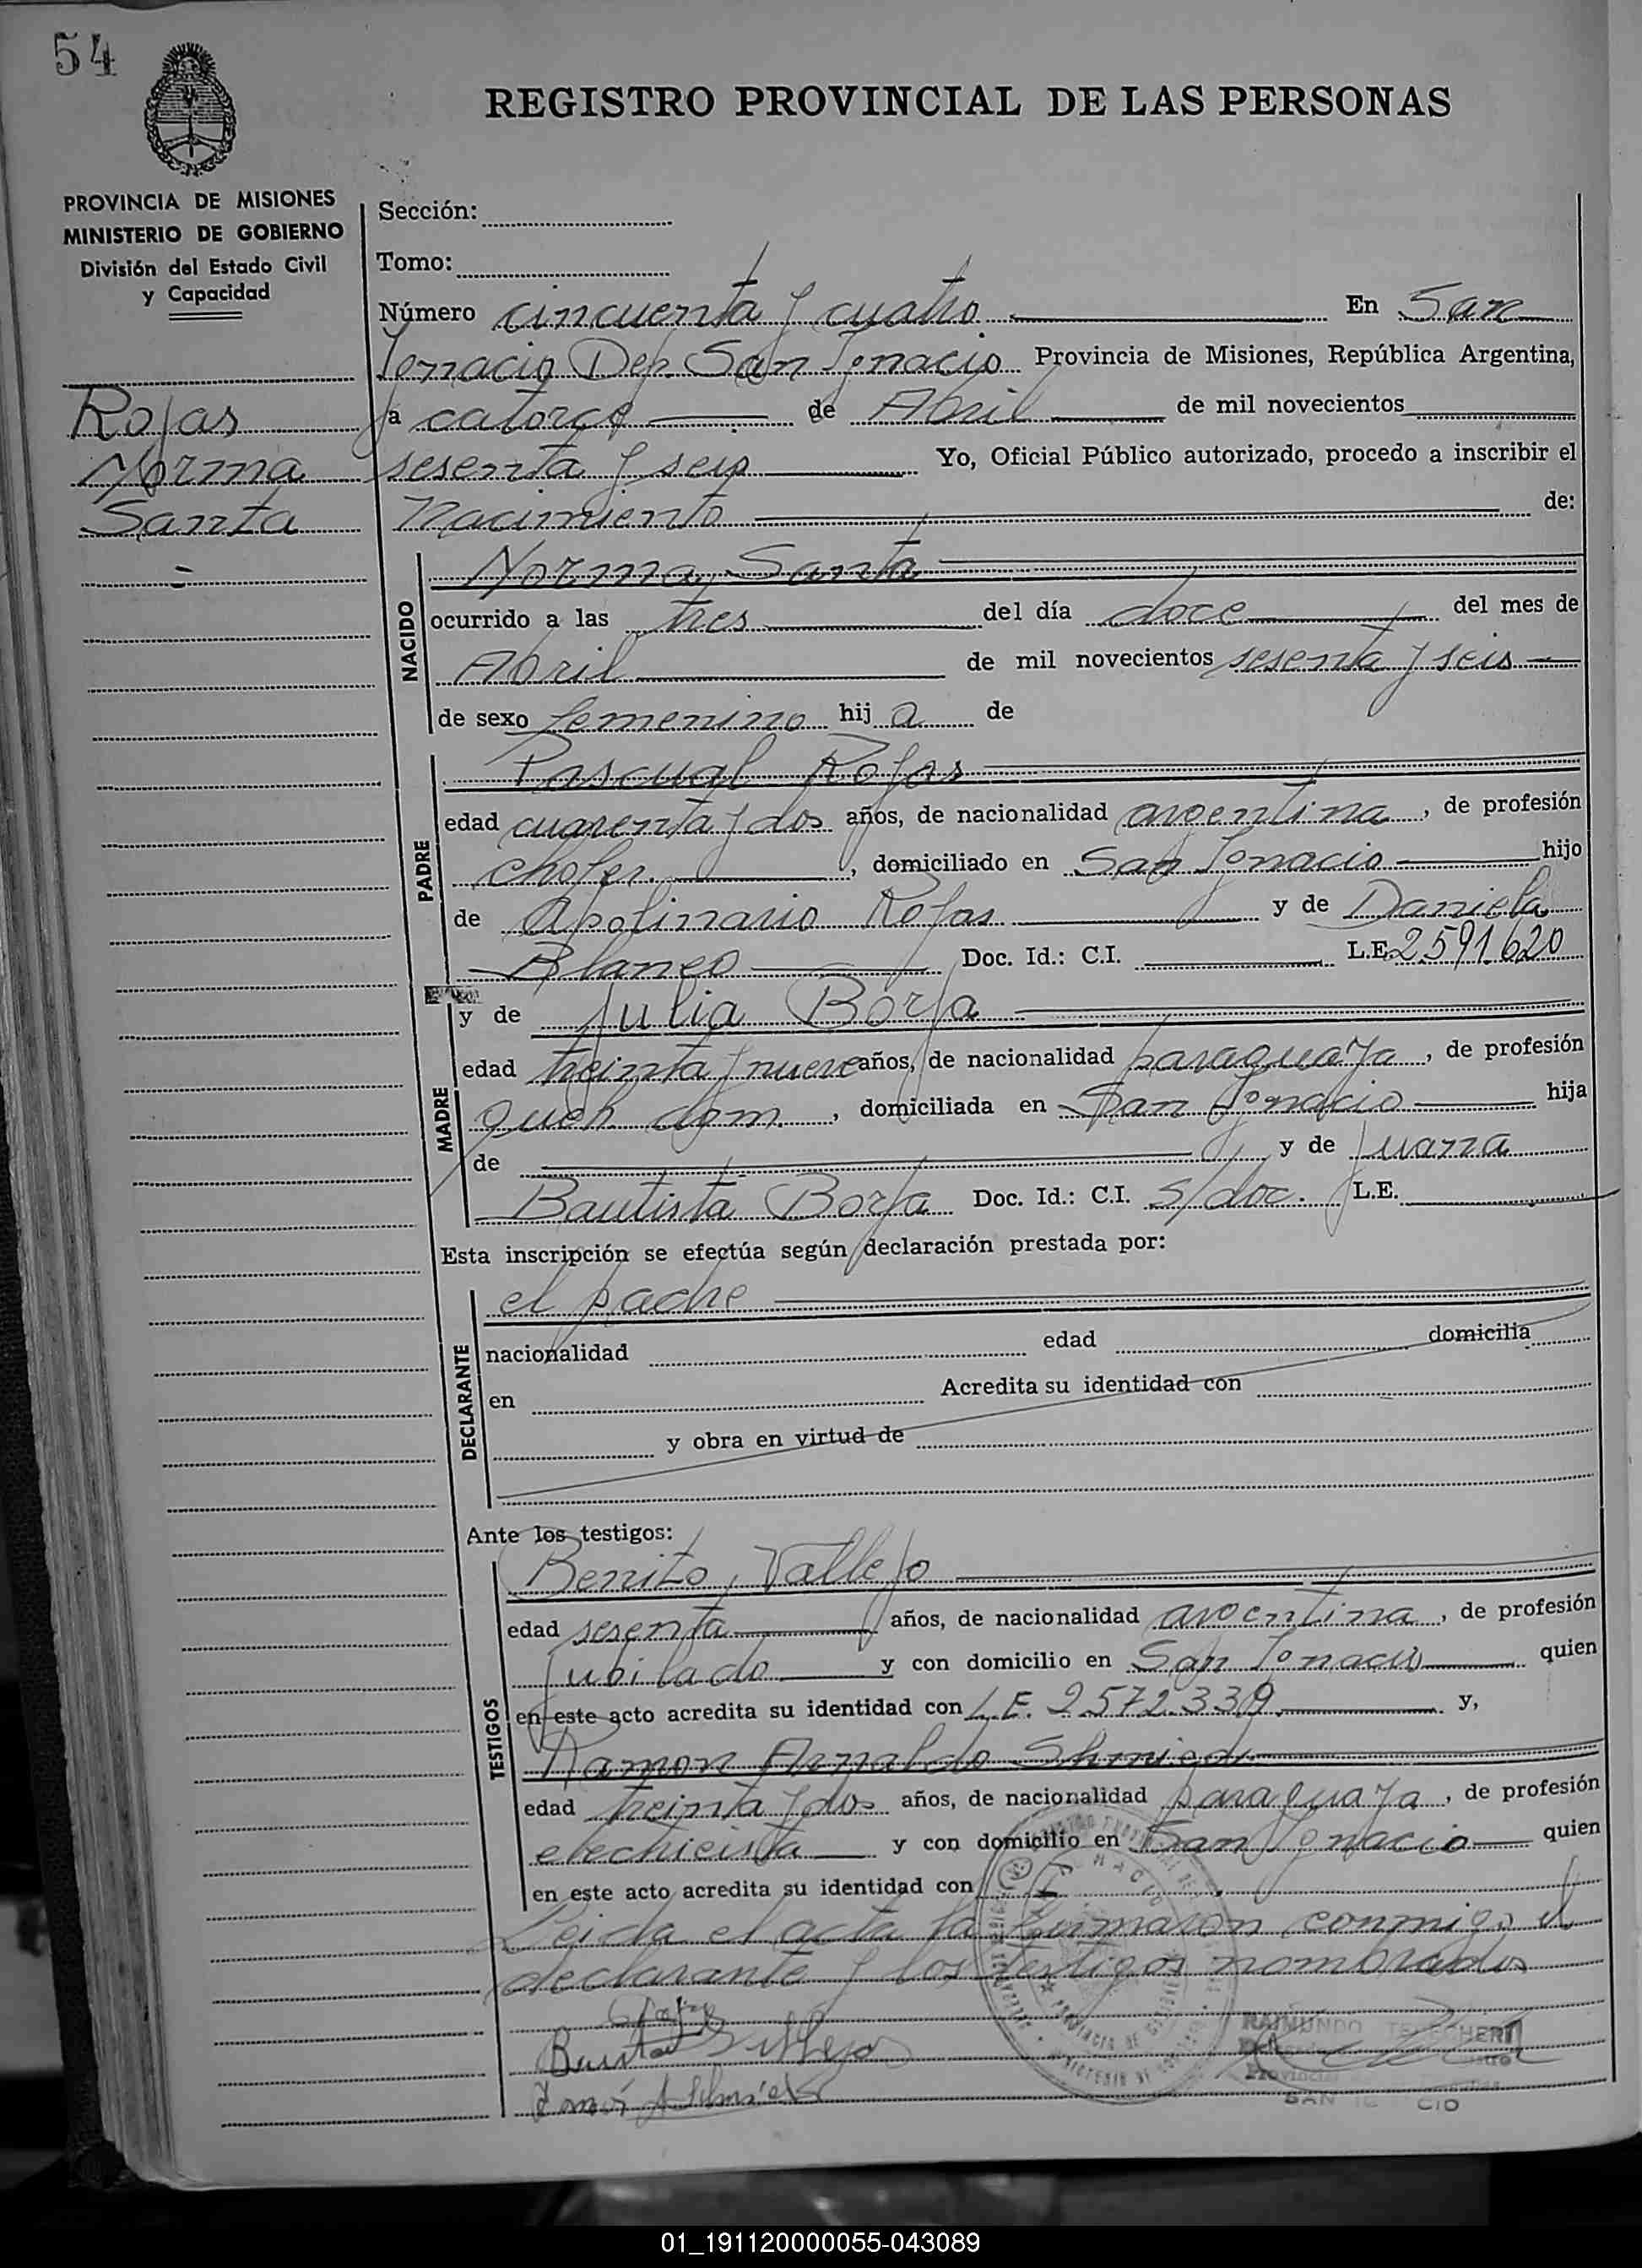 54
REGISTRO PROVINCIAL DE LAS PERSONAS
PROVINCIA DE MISIONES
MINISTERIO DE GOBIERNO
División del Estado Civil
y Capacidad
Rojas
Norma
Santa
Sección:
Tomo:
Número cincuenta y cuatro En San
Ignacio Dep. San Ignacio Provincia de Misiones, República Argentina,
a catorce de Abril de mil novecientos
sesenta y seis Yo, Oficial Público autorizado, procedo a inscribir el
Nacimiento de:
NACIDO
Norma Santa
ocurrido a las tres del día doce del mes de
Abril de mil novecientos sesenta y seis
de sexo femenino hij a de
PADRE
Pascual Rojas
edad cuarenta y dos años, de nacionalidad argentina, de profesión
chofer, domiciliado en San Ignacio hijo
de Apolinario Rojas y de Daniela
Blanco Doc. Id.: C.I. L.E. 2.591.620
MADRE
y de Julia Borja
edad treinta y nueve años, de nacionalidad paraguaya, de profesión
queh. dom., domiciliada en San Ignacio hija
de y de Juana
Bautista Borja Doc. Id.: C.I. s/doc. L.E.
Esta inscripción se efectúa según declaración prestada por:
DECLARANTE
el padre
nacionalidad edad domicilia
en Acredita su identidad con
y obra en virtud de
Ante los testigos:
TESTIGOS
Benito Vallejo
edad sesenta años, de nacionalidad argentina, de profesión
jubilado y con domicilio en San Ignacio quien
en este acto acredita su identidad con L.E. 2.572.339 y,
Ramon Arnaldo Shmied
edad treinta y dos años, de nacionalidad paraguaya, de profesión
electricista y con domicilio en San Ignacio quien
en este acto acredita su identidad con
Leida el acta la firmaron conmigo el
declarante y los testigos nombrados
Benito Vallejo
RAIMUNDO
01_191120000055-043089